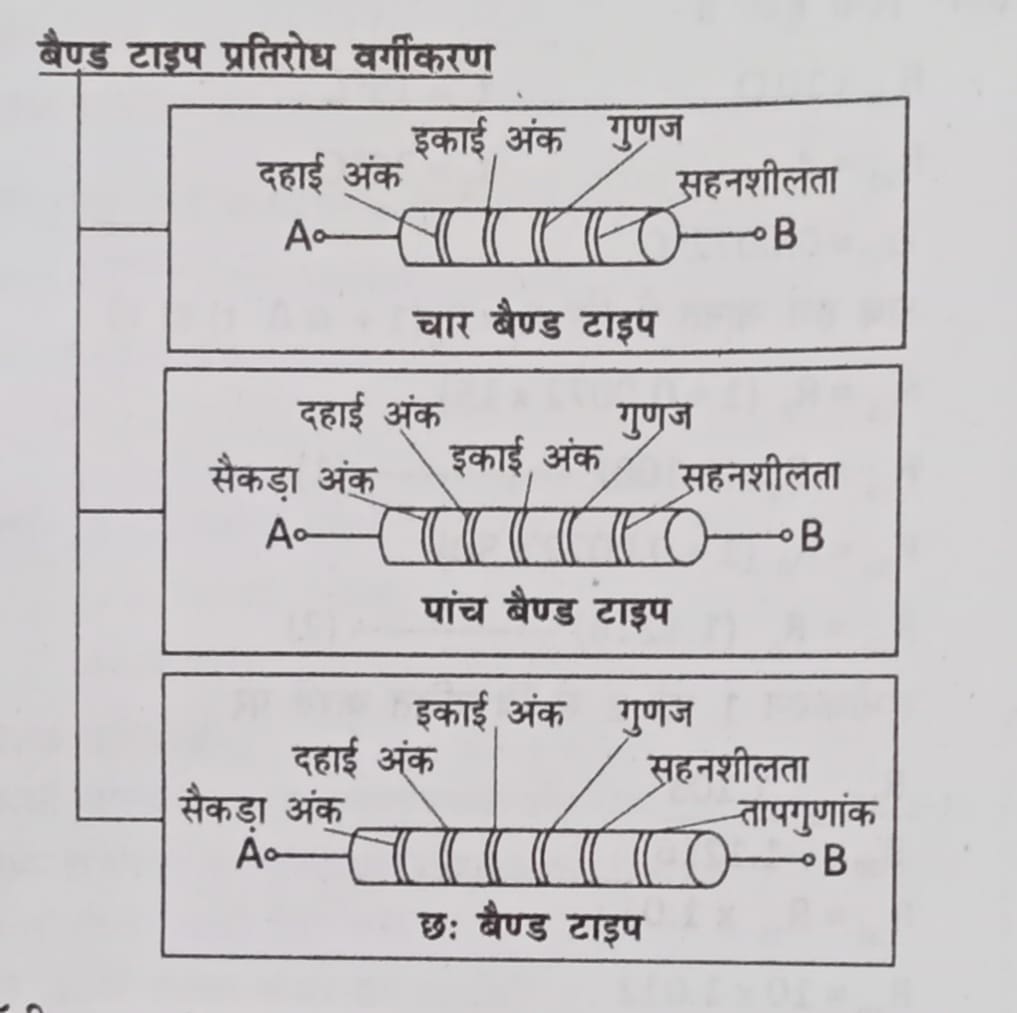 बैण्ड टाइप प्रतिरोध वर्गीकरण
इकाई अंक गुणज
दहाई अंक सहनशीलता
A B
चार बैण्ड टाइप
दहाई अंक गुणज
इकाई अंक
सैकड़ा अंक सहनशीलता
A B
पांच बैण्ड टाइप
इकाई अंक गुणज
दहाई अंक सहनशीलता
सैकड़ा अंक तापगुणांक
A B
छः बैण्ड टाइप